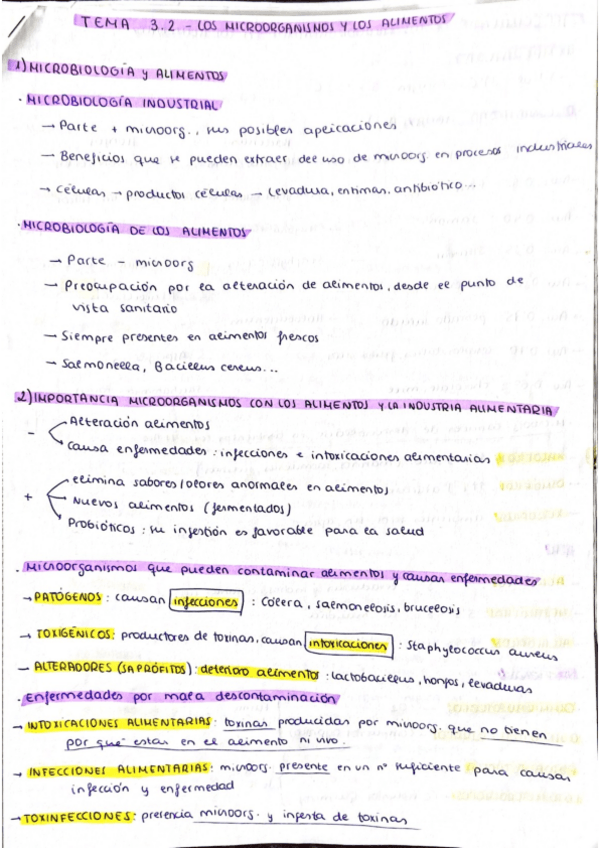 TEMA 3.2 - LOS MICROORGANISMOS Y LOS ALIMENTOS
1) MICROBIOLOGÍA Y ALIMENTOS
· MICROBIOLOGÍA INDUSTRIAL
→ Parte + microorg., sus posibles aplicaciones
→ Beneficios que se pueden extraer del uso de microorg en procesos industriales
→ Células → productos células → Levadura, enzimas, antibiótico...
· MICROBIOLOGÍA DE LOS ALIMENTOS
→ Parte - microorg
→ Preocupación por la alteración de alimentos, desde el punto de
vista sanitario
→ Siempre presentes en alimentos frescos
→ Salmonella, Bacillus cereus...
2) IMPORTANCIA MICROORGANISMOS CON LOS ALIMENTOS Y LA INDUSTRIA ALIMENTARIA
- Alteración alimentos
Causa enfermedades: infecciones e intoxicaciones alimentarias
+ elimina sabores/olores anormales en alimentos
Nuevos alimentos (fermentados)
Probióticos: su ingestión es favorable para la salud
· Microorganismos que pueden contaminar alimentos y causar enfermedades
→ PATÓGENOS: causan infecciones: Cólera, salmonelosis, brucelosis
→ TOXIGÉNICOS: productores de toxinas, causan intoxicaciones: Staphylococcus aureus
→ ALTERADORES (SAPRÓFITOS): deterioro alimentos: lactobacillus, hongos, levaduras
· Enfermedades por mala descontaminación
→ INTOXICACIONES ALIMENTARIAS: toxinas producidas por microorg. que no tienen
por qué estar en el alimento ni vivo.
→ INFECCIONES ALIMENTARIAS: microorg. presente en un nº suficiente para causar
infección y enfermedad
→ TOXINFECCIONES: presencia microorg. y ingesta de toxinas